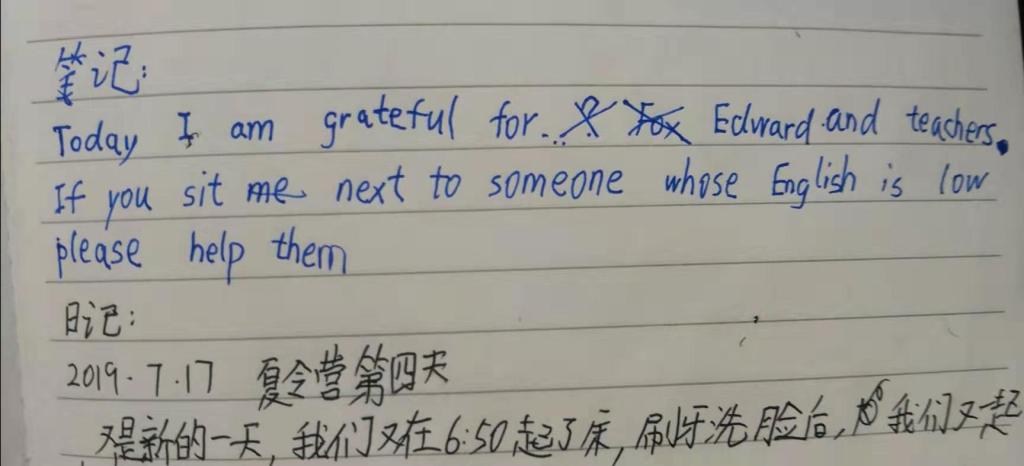 笔记:
Today I am grateful for.. Edward and teachers.
If you sit me next to someone whose English is low
please help them
日记:
2019.7.17 夏令营第四天
又是新的一天,我们又在6:50起了床,刷牙洗脸后,我们又一起